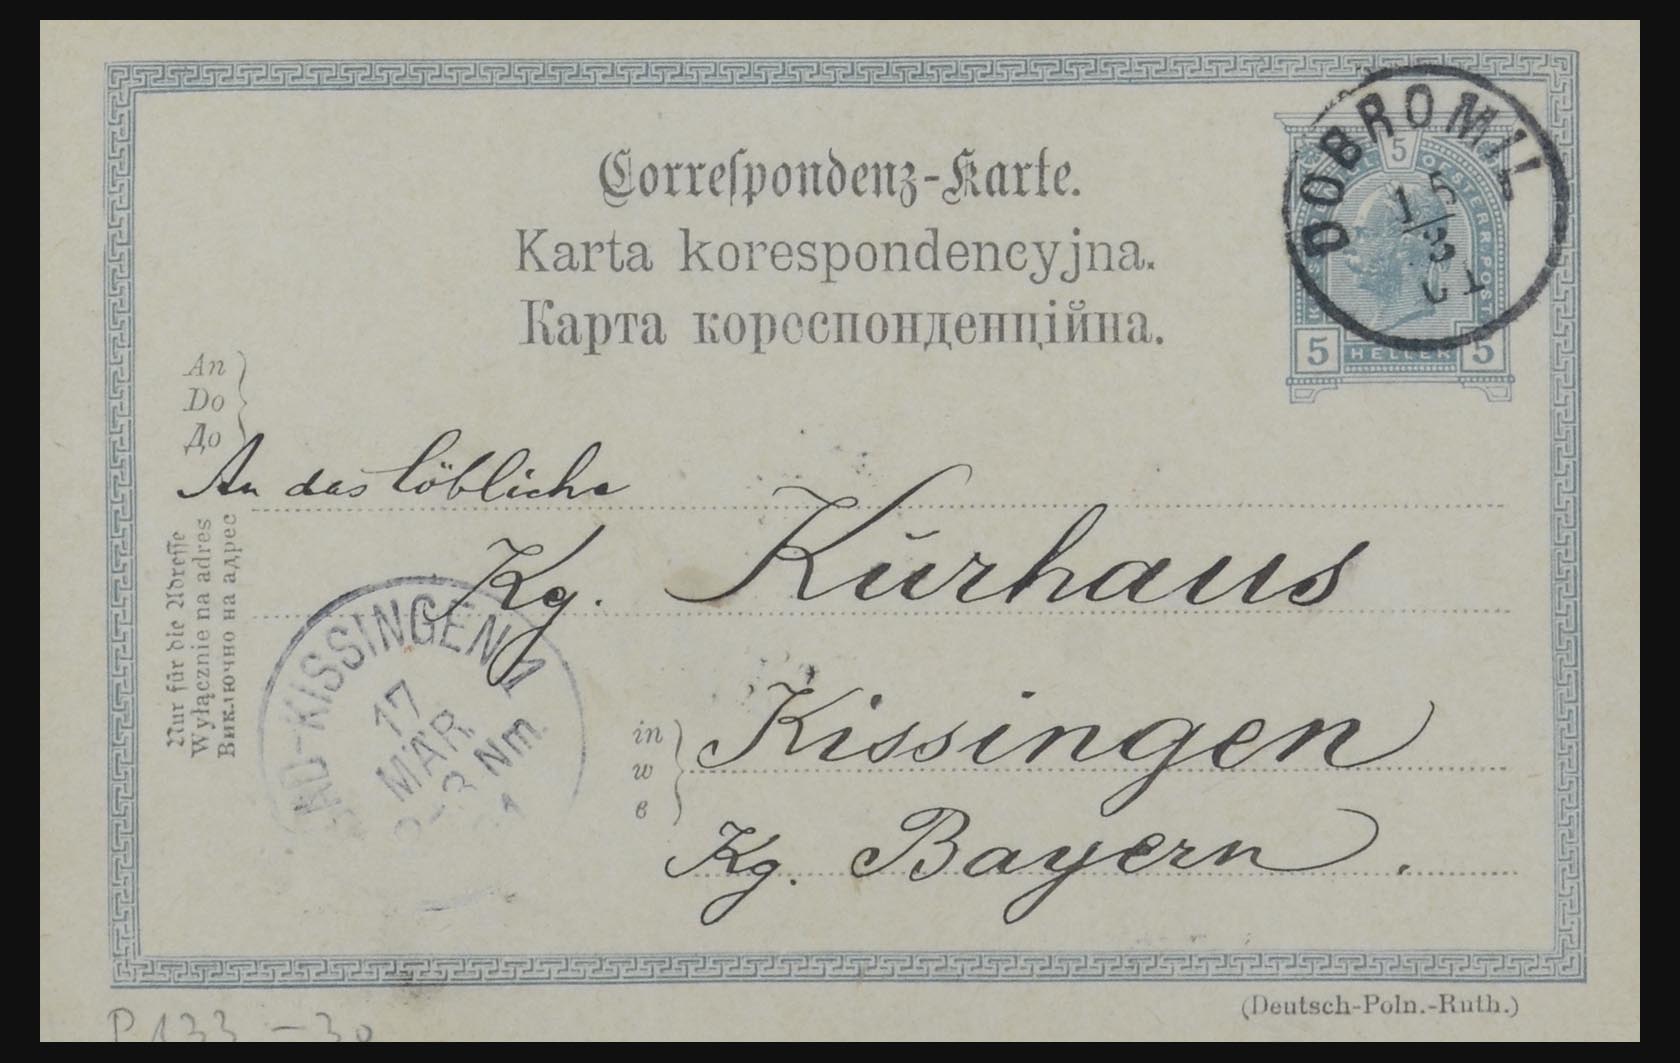 Correſpondenz-Karte.
Karta korespondencyjna.
Карта кореспонденційна.
5
KAIS. KÖN. OESTERR. POST
5 HELLER 5
DOBROMIL
15/3
01
An
Do
До
An das löbliche
Kg. Kurhaus
in
w
в
Kissingen
Kg. Bayern.
Nur für die Adreſſe
Wyłącznie na adres
Виключно на адрес
BAD-KISSINGEN 1
17
MÄR.
2-3 Nm.
(Deutsch-Poln.-Ruth.)
P 133 - 30